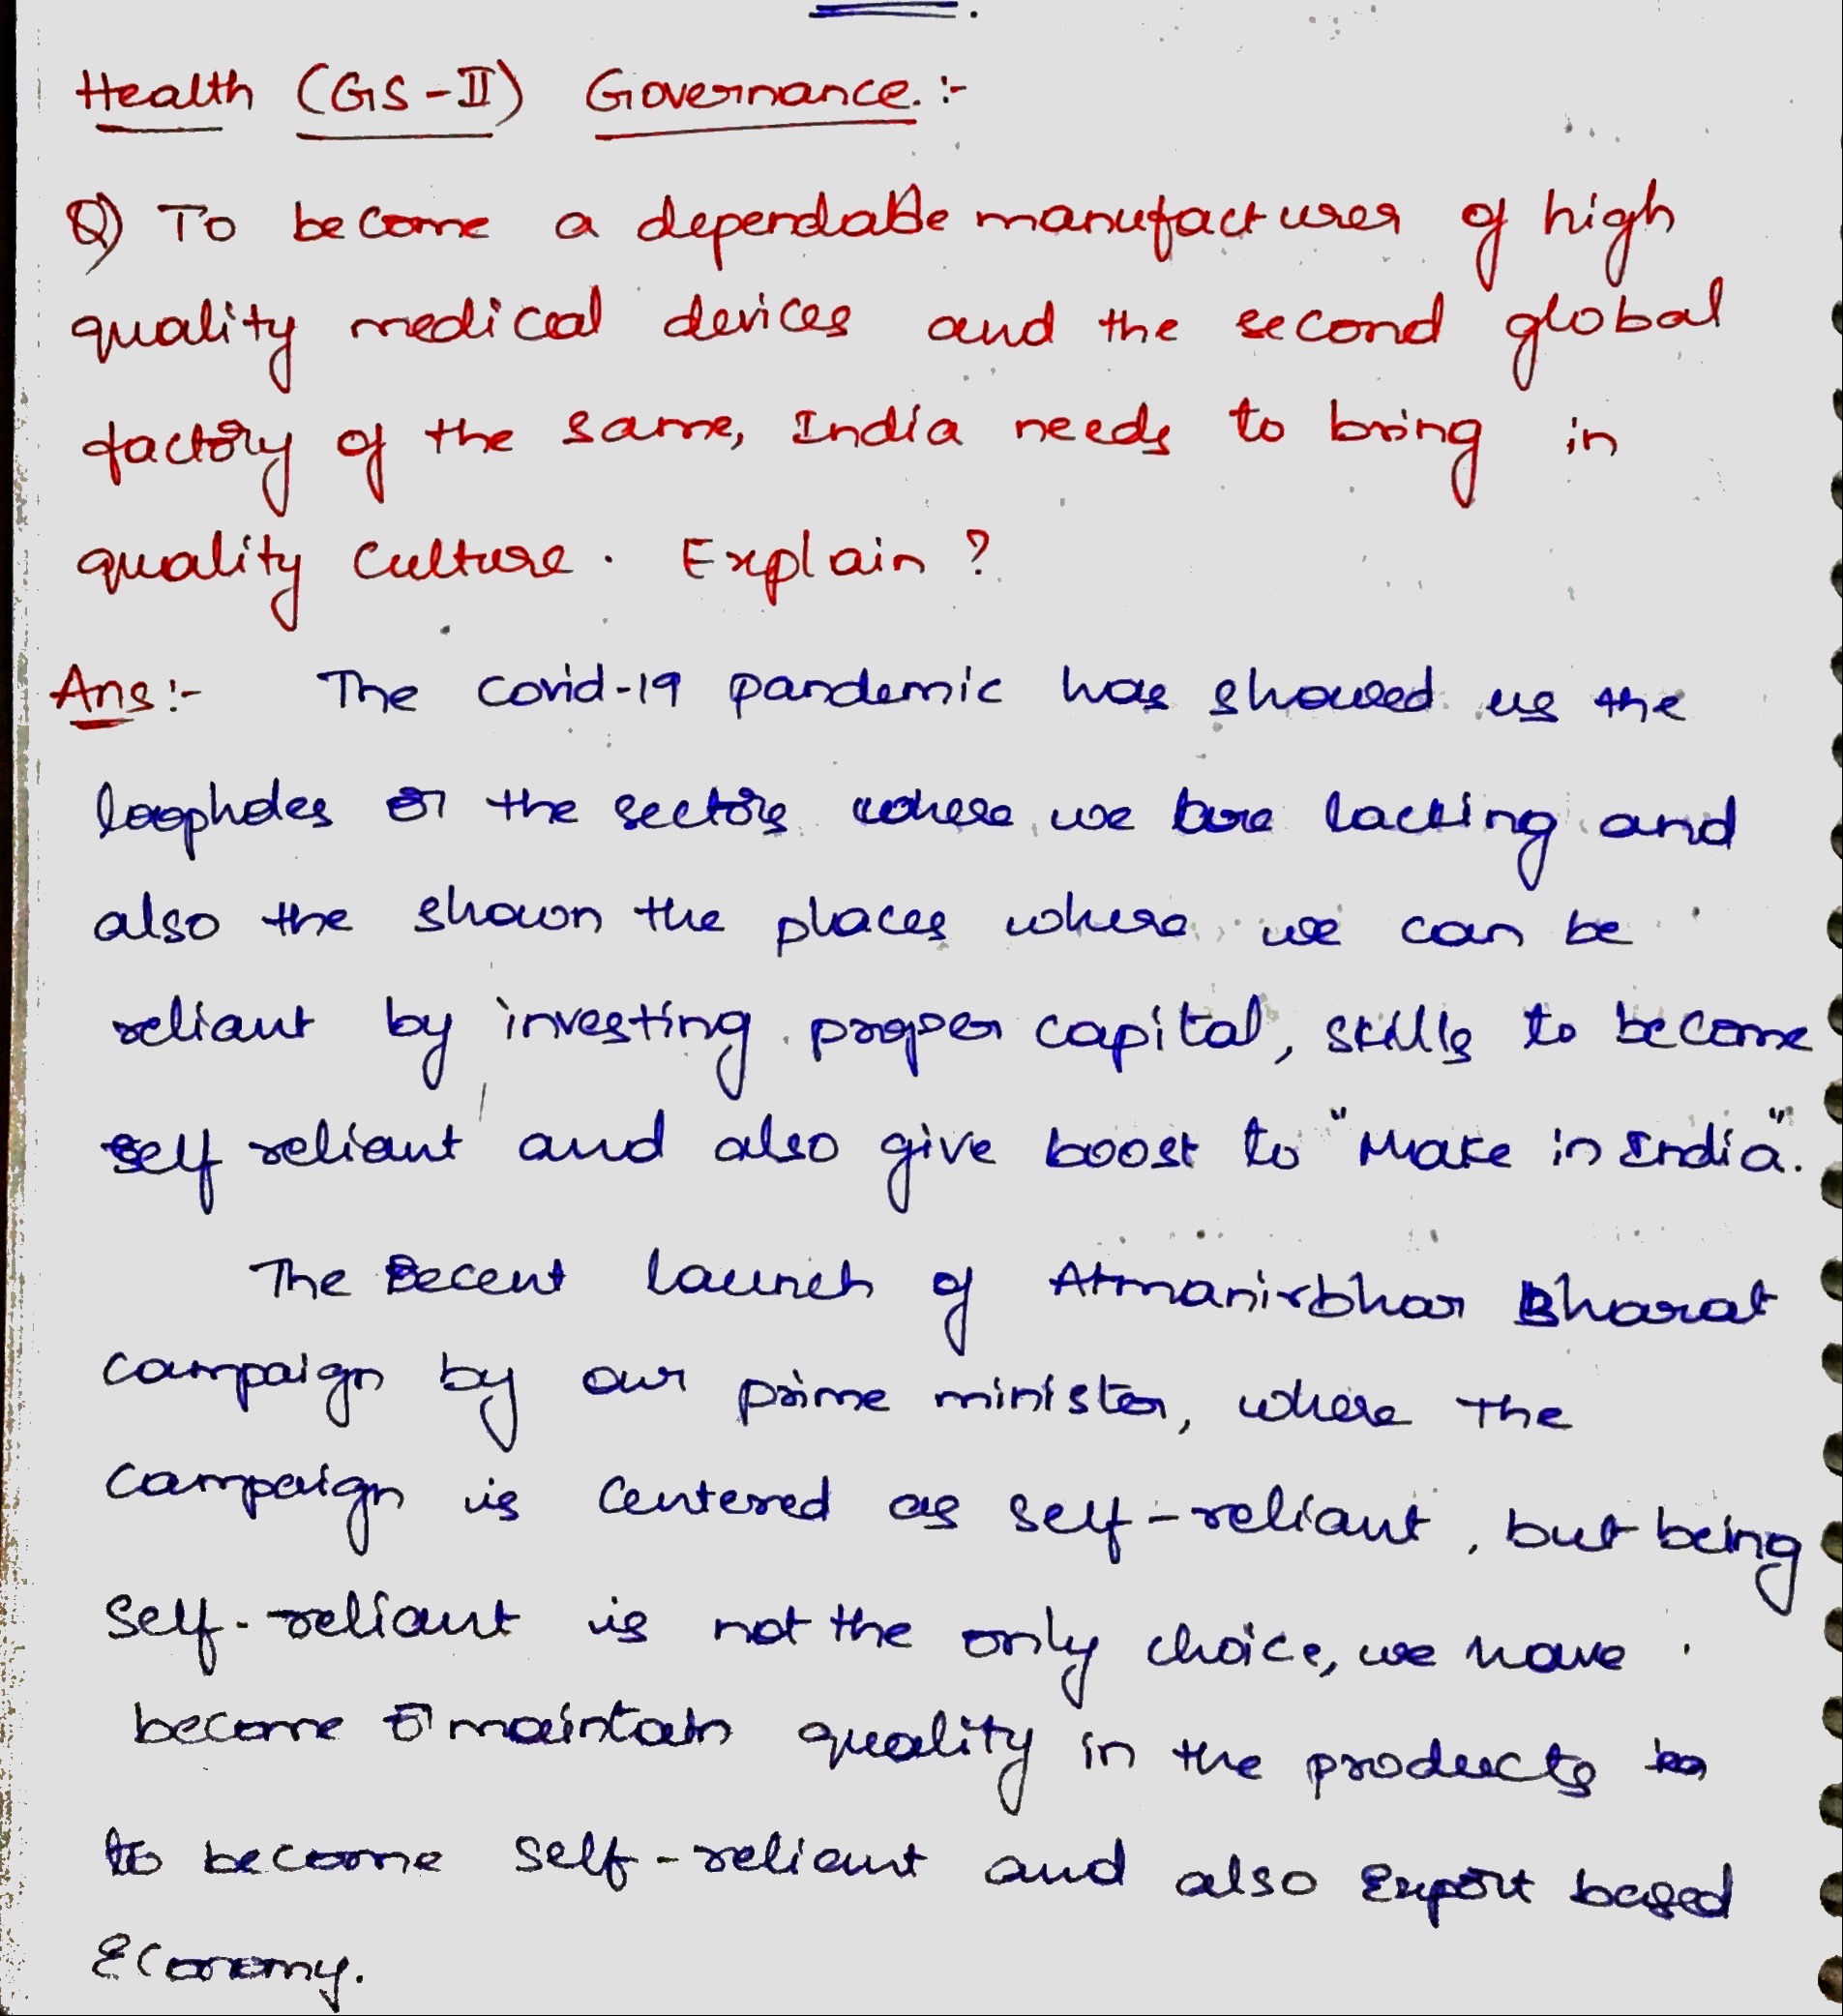 Health (GS-II) Governance.:-
Q) To become a dependable manufacturer of high
quality medical devices and the second global
factory of the same, India needs to bring in
quality culture. Explain?
Ans:- The covid-19 pandemic has showed us the
loopholes or the sectors where we are lacking and
also the shown the places where we can be
reliant by investing proper capital, skills to become
self reliant and also give boost to "Make in India".
The Recent launch of Atmanirbhar Bharat
campaign by our prime minister, where the
campaign is centered as self-reliant, but being
self-reliant is not the only choice, we have
become maintain quality in the products
to become self-reliant and also Export based
Economy.